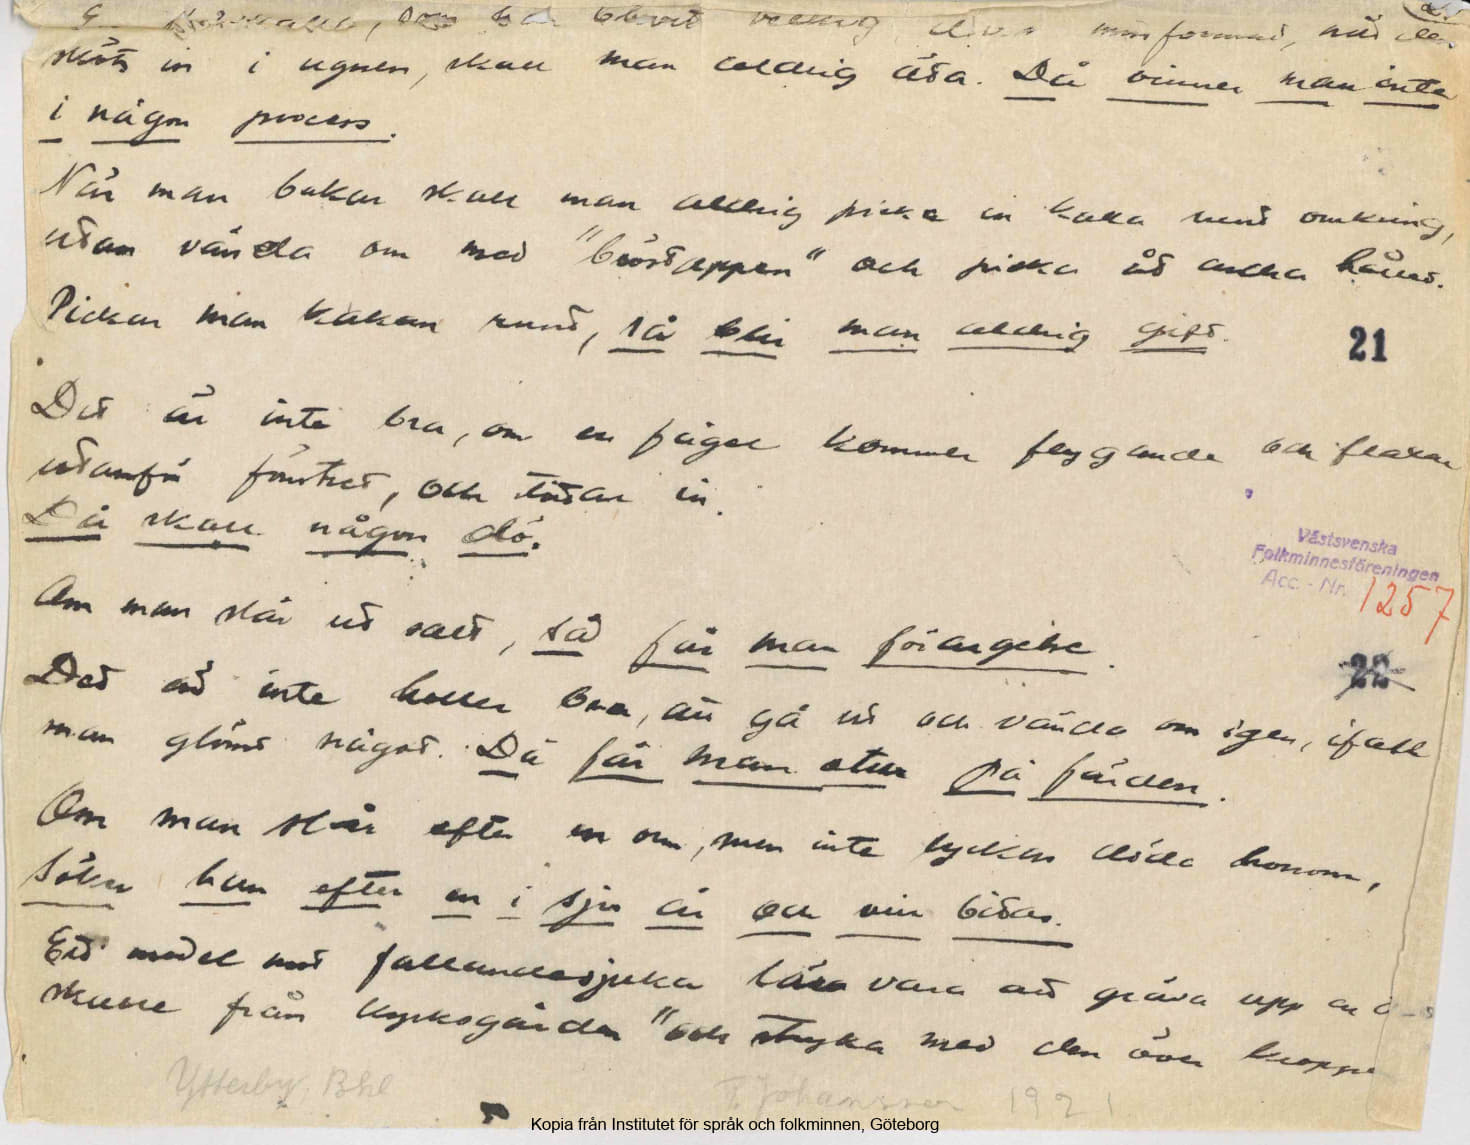 som blivit när den
sköts in i ugnen, skall man aldrig äta. Då vinner man inte
i någon process.
När man bakar skall man aldrig picka in kaka rund omkring,
utan vända om med "börstappen" och picka åt andra hållet.
Pickar man kakan rund, så blir man aldrig gift.
21
Det är inte bra, om en fågel kommer flygande och flaxar
utanför fönstret, och tittar in.
Då skall någon dö.
Västsvenska
Folkminnesföreningen
Acc. - Nr. 1257
Om man slår ut salt, så får man förargelse.
22
Det är inte heller bra, att gå ut och vända om igen, ifall
man glömt något. Då får man otur på färden.
Om man slår efter en orm, men inte lyckas döda honom,
söker han efter en i sju år och vill bitas.
Ett medel mot fallandesjuka lär vara att gräva upp en
skalle från kyrkogården "och stryka med den över kroppe
Ytterby, Bhl Johansson 1921
Kopia från Institutet för språk och folkminnen, Göteborg